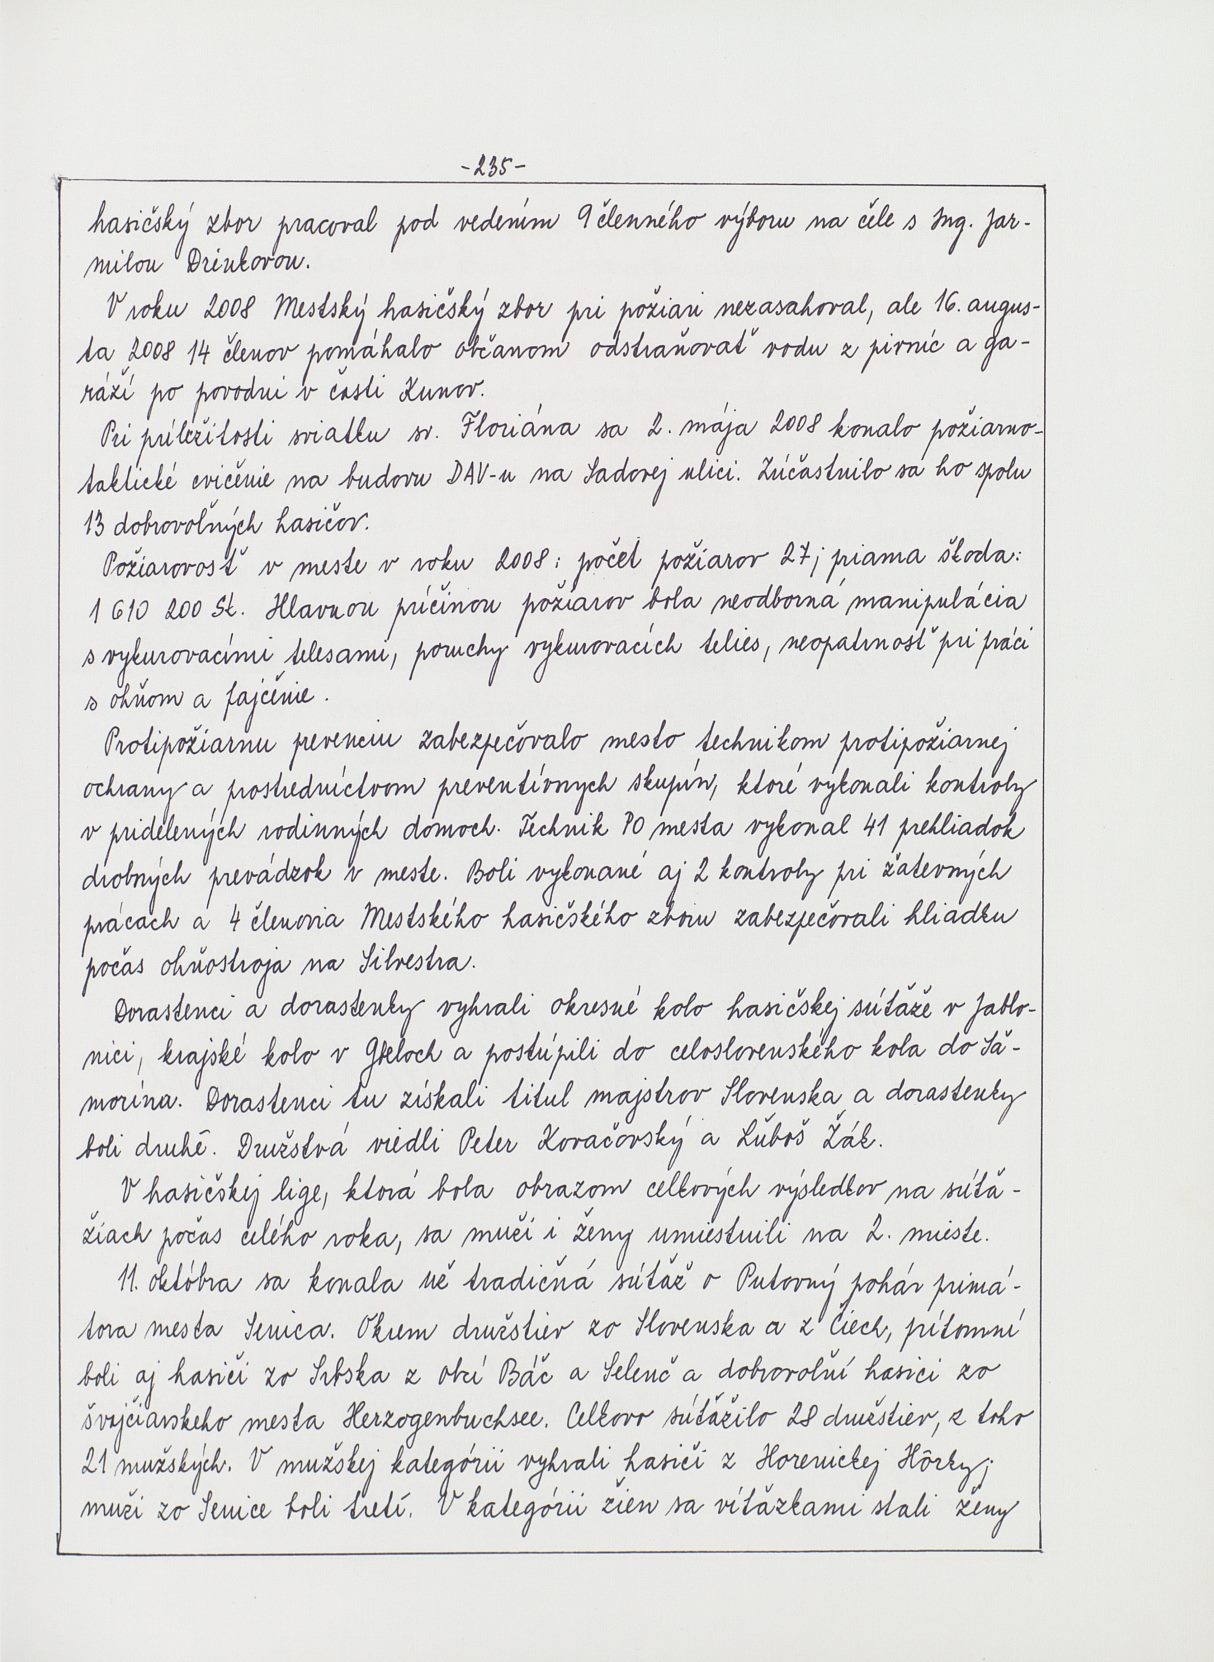 -235-
hasičský zbor pracoval pod vedením 9členného výboru na čele s Ing. Jar-
milou Drinkovou.
V roku 2008 Mestský hasičský zbor pri požiari nezasahoval, ale 16. augus-
ta 2008 14 členov pomáhalo občanom odstraňovať vodu z pivníc a ga-
ráží po povodni v časti Kunov.
Pri príležitosti sviatku sv. Floriána sa 2. mája 2008 konalo požiarno-
taktické cvičenie na budovu DAV-u na Sadovej ulici. Zúčastnilo sa ho spolu
13 dobrovoľných hasičov.
Požiarovosť v meste v roku 2008: počet požiarov 27; priama škoda:
1 610 200 Sk. Hlavnou príčinou požiarov bola neodborná manipulácia
s vykurovacími telesami, poruchy vykurovacích telies, neopatrnosť pri práci
s ohňom a fajčenie.
Protipožiarnu prevenciu zabezpečovalo mesto technikom protipožiarnej
ochrany a prostredníctvom preventívnych skupín, ktoré vykonali kontroly
v pridelených rodinných domoch. Technik PO mesta vykonal 41 prehliadok
drobných prevádzok v meste. Boli vykonané aj 2 kontroly pri žatevných
prácach a 4 členovia Mestského hasičského zboru zabezpečovali hliadku
počas ohňostroja na Silvestra.
Dorastenci a dorastenky vyhrali okresné kolo hasičskej súťaže v Jablo-
nici, krajské kolo v Gbeloch a postúpili do celoslovenského kola do Ša-
morína. Dorastenci tu získali titul majstrov Slovenska a dorastenky
boli druhé. Družstvá viedli Peter Kovačovský a Ľuboš Žák.
V hasičskej lige, ktorá bola obrazom celkových výsledkov na súťa-
žiach počas celého roka, sa muži i ženy umiestnili na 2. mieste.
11. októbra sa konala už tradičná súťaž o Putovný pohár primá-
tora mesta Senica. Okrem družstiev zo Slovenska a z Čiech, prítomní
boli aj hasiči zo Srbska z obcí Báč a Selenč a dobrovoľní hasiči zo
švajčiarskeho mesta Herzogenbuchsee. Celkovo súťažilo 28 družstiev, z toho
21 mužských. V mužskej kategórii vyhrali hasiči z Horenickej Hôrky;
muži zo Senice boli tretí. V kategórii žien sa víťazkami stali ženy